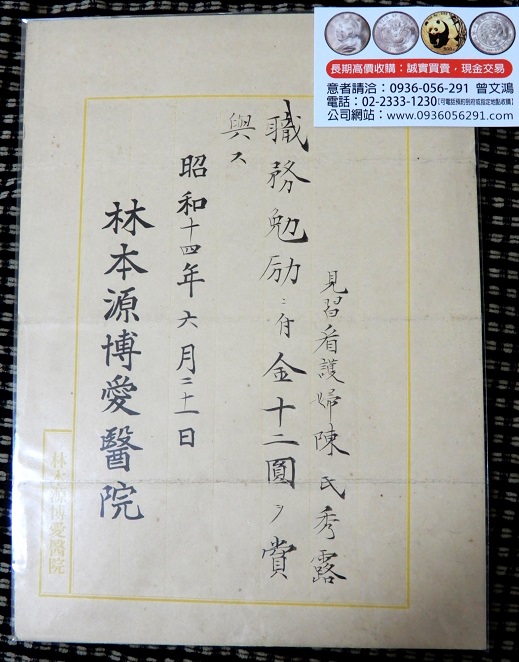 長期高價收購：誠實買賣，現金交易
意者請洽：0936-056-291 曾文鴻
電話：02-2333-1230【可電話預約到府或指定地點收購】
公司網站：www.0936056291.com
見習看護婦陳氏秀露
職務勉励ニ付金十二圓ヲ賞
與ス
昭和十四年六月二十一日
林本源博愛醫院
林本源博愛醫院